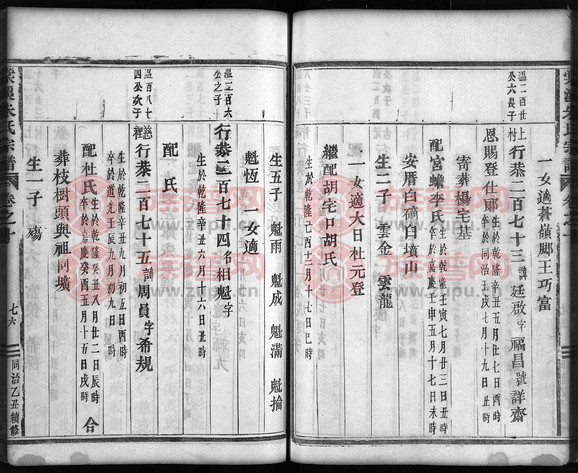 一女適蒼嶺鄭王巧富
行恭二百七十三諱廷啟字福昌號詳齋
恩賜登仕郎
生於乾隆辛丑五月廿七日酉時
卒於同治壬戌七月十九日丑時
寄葬楊宅基
配宮蟾李氏
生於乾隆壬寅七月廿三日丑時
卒於嘉慶壬申五月十七日未時
安厝白磧白墳山
生二子 雲金 雲龍
一女適大日杜元登
繼配胡宅口胡氏
生於乾隆己酉十二月十七日巳時
生五子 魁雨 魁成 魁滿 魁掄
魁恆 一女適
溫二百六
公之子
行恭二百七十四名相魁字
生於乾隆辛丑六月十六日丑時
配 氏
溫百八十
四公次子
行恭二百七十五諱周員字希規
生於乾隆辛丑九月初五日酉時
卒於道光壬辰九月初九日 時
配杜氏
生於乾隆癸丑八月廿二日辰時
卒於嘉慶癸酉五月十五日戌時
合葬枝樹頭與祖同壙
生一子 瑒
朱氏宗譜
卷之十
七六
同治乙丑續修